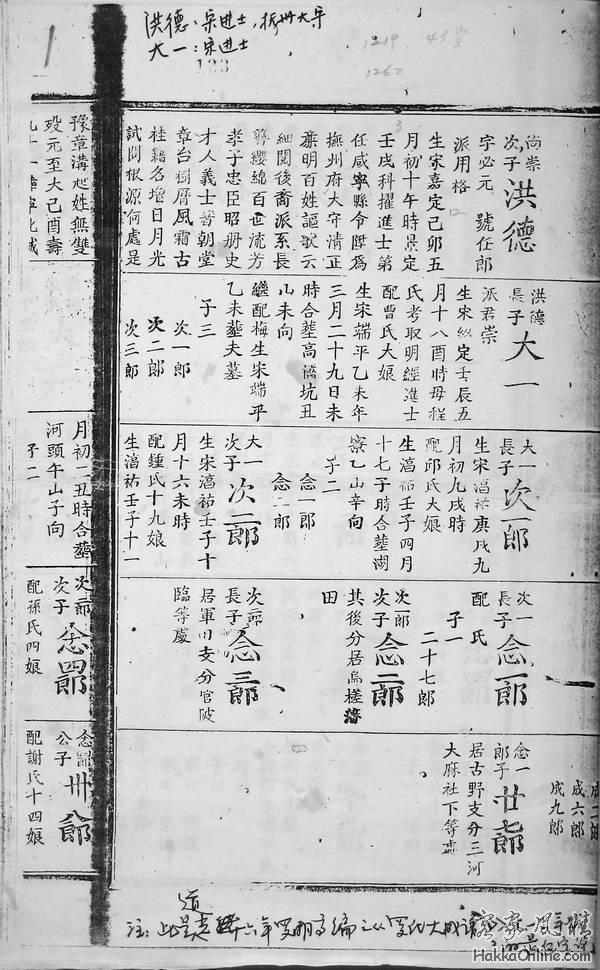 洪德：宋进士，抚州太守
大一：宋进士
1219
1262
133
尚崇次子 洪德
字必元 號任郎
派用格
生宋嘉定己卯五
月初十午時景定
壬戌科擢進士第
任咸寧縣令陞為
撫州府大守清正
廉明百姓謳歌云
細閱後裔派系長
簪纓綿百世流芳
孝子忠臣昭册史
才人義士普朝堂
章台獨曆風霜古
桂籍名增日月光
試問根源何處是
豫章溝起姓無雙
歿元至大己酉壽
洪德長子 大一
派君崇
生宋紹定壬辰五
月十八酉時母程
氏考取明經進士
配曹氏大娘
生宋端平乙未年
三月二十九日未
時合塟高 坑丑
山未向
繼配梅生宋端平
乙未塟夫墓
子三
次一郎
次二郎
次三郎
大一長子 次一郎
生宋淳祐庚戌九
月初九戌時
配邱氏大娘
生淳祐壬子四月
十七子時合塟湖
寮乙山辛向
子二
念一郎
念二郎
大一次子 次二郎
生宋淳祐壬子十
月十六未時
配鍾氏十九娘
生淳祐壬子十一
月初二丑時合塟
河頭午山子向
子二
次一長子 念一郎
配 氏
子一
二十七郎
次一郎次子 念二郎
其後分居烏槎
田
次二郎長子 念三郎
居軍田支分官陂
臨等處
次二郎次子 念四郎
配孫氏四娘
成六郎
成九郎
念一郎子 廿七郎
居古野支分三河
大麻社下等處
念四郎公子 卅八郎
配謝氏十四娘
注：此是道光 十六年
客家風情
HakkaOnline.com